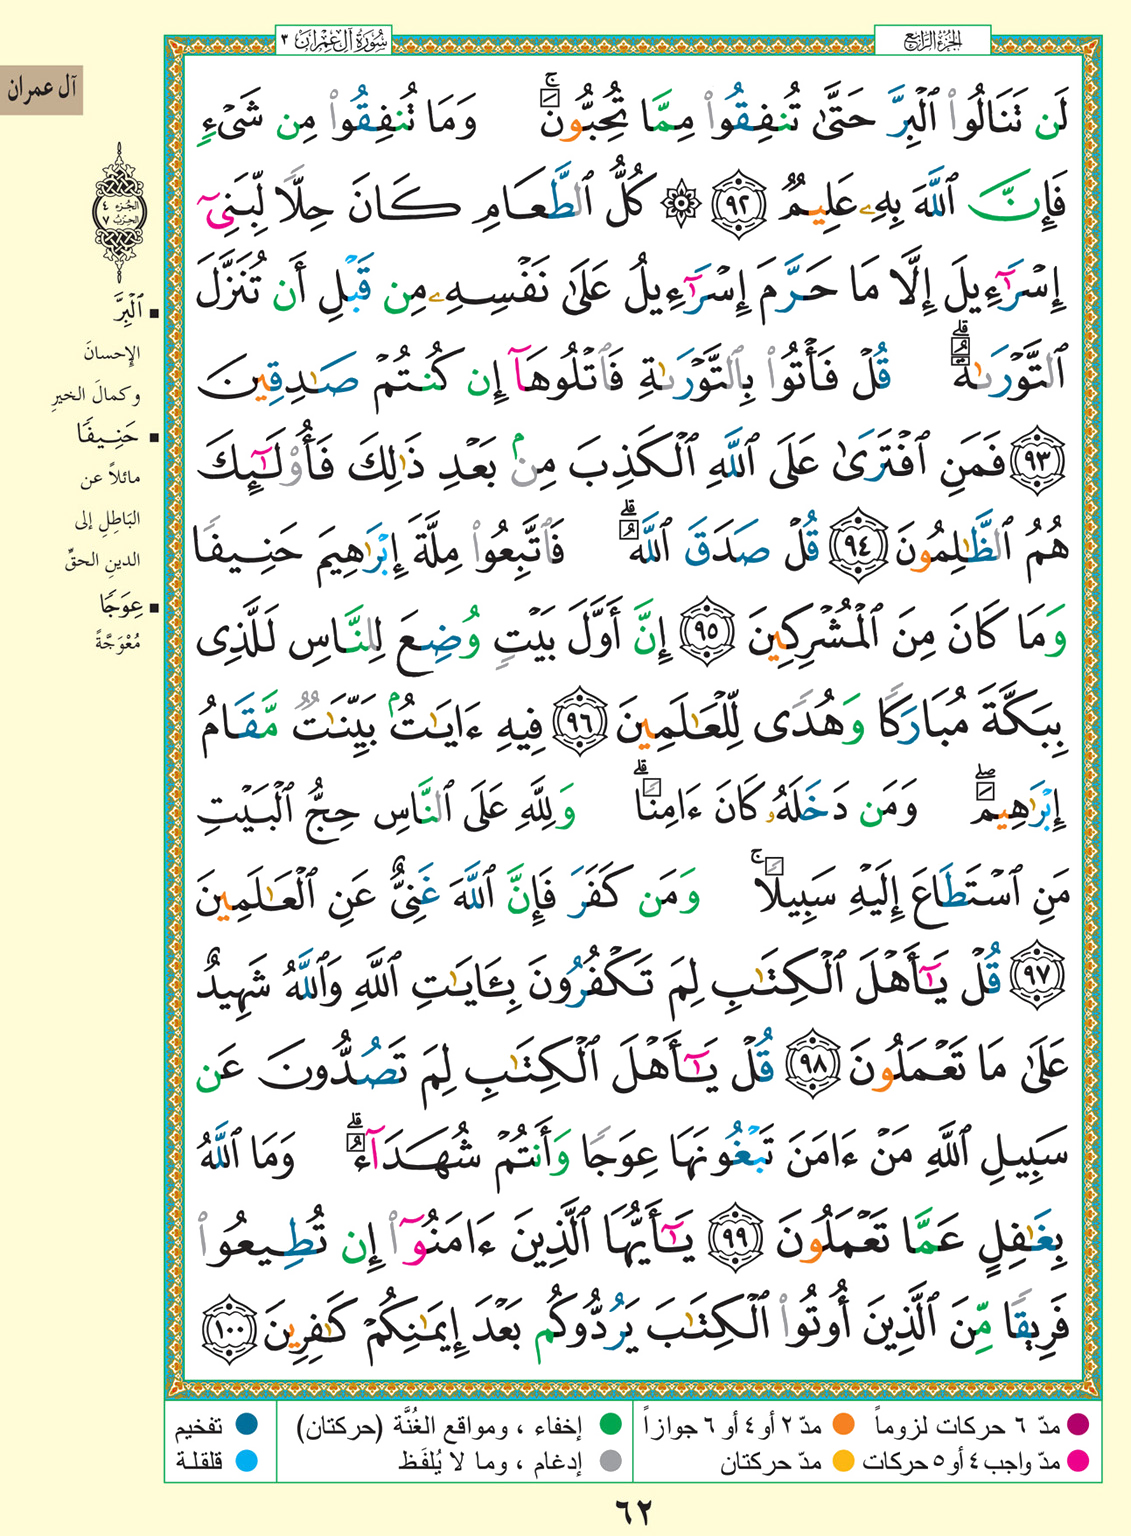 سُورَةُ آلِ عِمْرَانَ ٣
الجُزءُ الرَّابِعُ
آل عمران
لَن تَنَالُوا۟ ٱلْبِرَّ حَتَّىٰ تُنفِقُوا۟ مِمَّا تُحِبُّونَ ۚ وَمَا تُنفِقُوا۟ مِن شَىْءٍ
فَإِنَّ ٱللَّهَ بِهِۦ عَلِيمٌ ٩٢ ۞ كُلُّ ٱلطَّعَامِ كَانَ حِلًّا لِّبَنِىٓ
إِسْرَٰٓءِيلَ إِلَّا مَا حَرَّمَ إِسْرَٰٓءِيلُ عَلَىٰ نَفْسِهِۦ مِن قَبْلِ أَن تُنَزَّلَ
ٱلتَّوْرَىٰةُ ۗ قُلْ فَأْتُوا۟ بِٱلتَّوْرَىٰةِ فَٱتْلُوهَآ إِن كُنتُمْ صَـٰدِقِينَ
٩٣ فَمَنِ ٱفْتَرَىٰ عَلَى ٱللَّهِ ٱلْكَذِبَ مِنۢ بَعْدِ ذَٰلِكَ فَأُو۟لَـٰٓئِكَ
هُمُ ٱلظَّـٰلِمُونَ ٩٤ قُلْ صَدَقَ ٱللَّهُ ۗ فَٱتَّبِعُوا۟ مِلَّةَ إِبْرَٰهِيمَ حَنِيفًا
وَمَا كَانَ مِنَ ٱلْمُشْرِكِينَ ٩٥ إِنَّ أَوَّلَ بَيْتٍ وُضِعَ لِلنَّاسِ لَلَّذِى
بِبَكَّةَ مُبَارَكًا وَهُدًى لِّلْعَـٰلَمِينَ ٩٦ فِيهِ ءَايَـٰتٌۢ بَيِّنَـٰتٌ مَّقَامُ
إِبْرَٰهِيمَ ۖ وَمَن دَخَلَهُۥ كَانَ ءَامِنًا ۗ وَلِلَّهِ عَلَى ٱلنَّاسِ حِجُّ ٱلْبَيْتِ
مَنِ ٱسْتَطَاعَ إِلَيْهِ سَبِيلًا ۚ وَمَن كَفَرَ فَإِنَّ ٱللَّهَ غَنِىٌّ عَنِ ٱلْعَـٰلَمِينَ
٩٧ قُلْ يَـٰٓأَهْلَ ٱلْكِتَـٰبِ لِمَ تَكْفُرُونَ بِـَٔايَـٰتِ ٱللَّهِ وَٱللَّهُ شَهِيدٌ
عَلَىٰ مَا تَعْمَلُونَ ٩٨ قُلْ يَـٰٓأَهْلَ ٱلْكِتَـٰبِ لِمَ تَصُدُّونَ عَن
سَبِيلِ ٱللَّهِ مَنْ ءَامَنَ تَبْغُونَهَا عِوَجًا وَأَنتُمْ شُهَدَآءُ ۗ وَمَا ٱللَّهُ
بِغَـٰفِلٍ عَمَّا تَعْمَلُونَ ٩٩ يَـٰٓأَيُّهَا ٱلَّذِينَ ءَامَنُوٓا۟ إِن تُطِيعُوا۟
فَرِيقًا مِّنَ ٱلَّذِينَ أُوتُوا۟ ٱلْكِتَـٰبَ يَرُدُّوكُم بَعْدَ إِيمَـٰنِكُمْ كَـٰفِرِينَ ١٠٠
الجُزء ٤
الحِزبُ ٧
▪ ٱلْبِرَّ
الإحسانَ
وكمالَ الخيرِ
▪ حَنِيفًا
مائلاً عن
البَاطِلِ إلى
الدين الحقِّ
▪ عِوَجًا
مُعْوَجَّةً
مدّ ٦ حركات لزوماً ● مدّ ٢ أو ٤ أو ٦ جوازاً ● إخفاء ، ومواقع الغُنَّة (حركتان) ● تفخيم
مدّ واجب ٤ أو ٥ حركات ● مدّ حركتان ● إدغام ، وما لا يُلفَظ ● قلقلة
٦٢